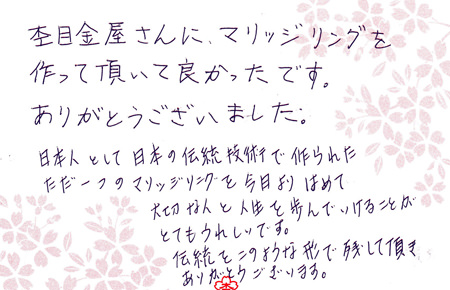 杢目金屋さんに、マリッジリングを
作って頂いて良かったです。
ありがとうございました。
日本人として日本の伝統技術で作られた
ただ一つのマリッジリングを今日より はめて
大切な人と人生を歩んでいけることが
とてもうれしいです。
伝統をこのような形で残して頂き
ありがとうございます。